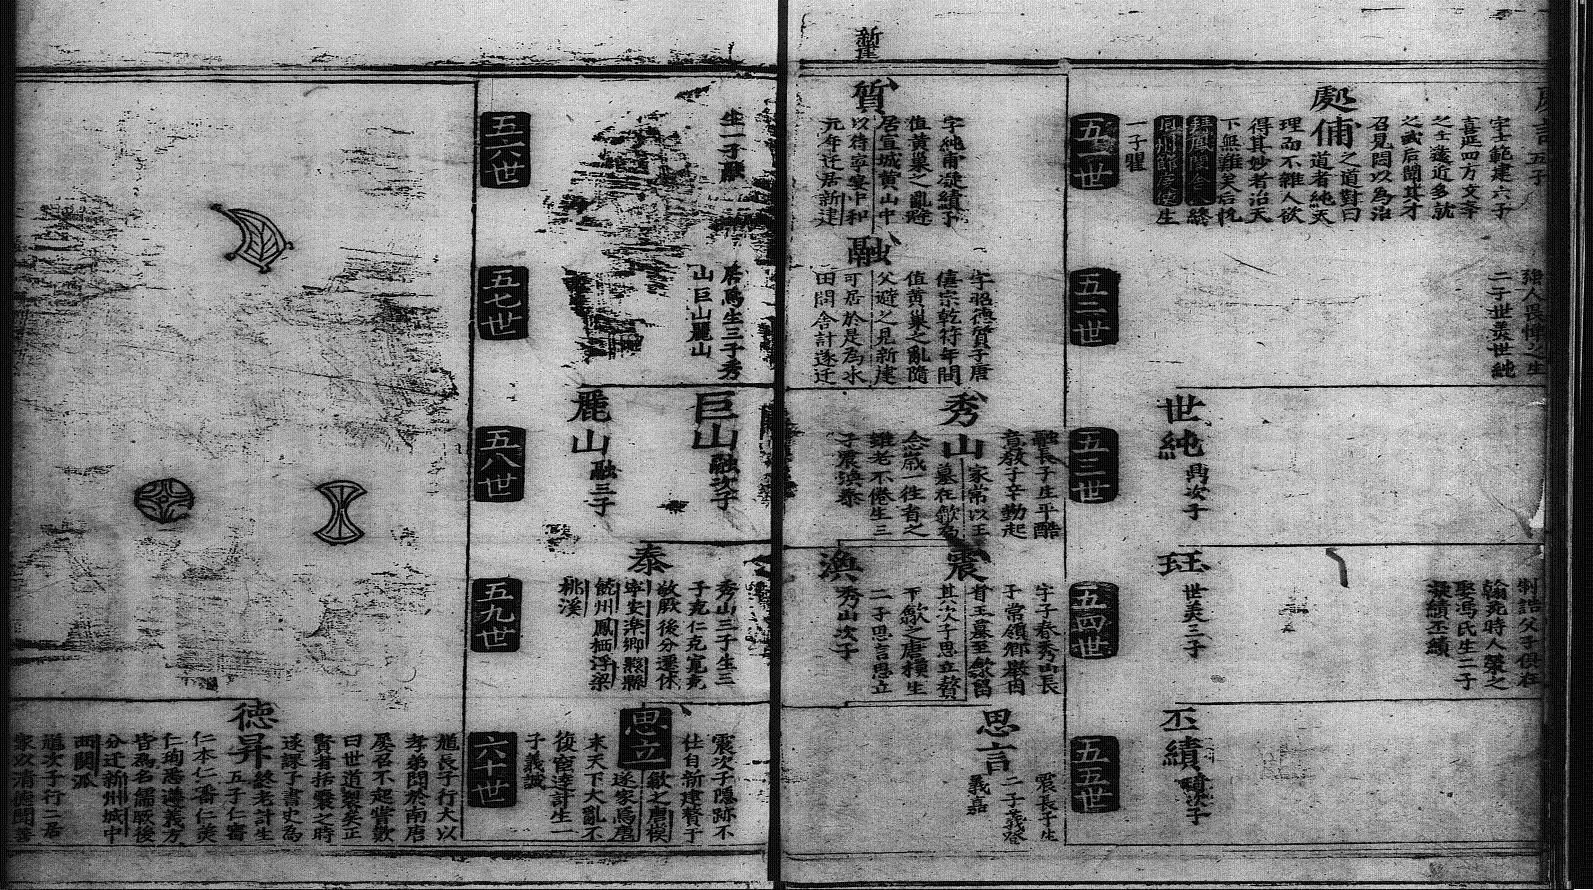 新建
字士範建六子
喜延四方文學
之士遠近多就
之武后聞其才
召見問以為治
處俌
之道對曰
道者純天
理而不雜人欲
得其妙者治天
下無難矣后悅
生
一子瞿
五一世
二子世美世純
五二世
世純
禼次子
五三世
制誥父子俱在
翰苑時人榮之
娶馮氏生二子
凝績丕績
玨
世美三子
五四世
丕績
五五世
質
字純甫凝績子
值黃巢之亂避
居宣城黃山中
以待寧宴中和
元年迁居新建
融
字昭德質子唐
僖宗乾符年間
值黃巢之亂隨
父避之見新建
可居於是為水
田問舍計遂迁
秀山
融長子生平酷
意教子辛勤起
家常以王
墓在歙為
念歲一往省之
雖老不倦生三
子震渙泰
震
字子春秀山長
子常領鄉舉酉
省王墓至歙留
其次子思立贅
下歙之唐模生
二子思言思立
渙
秀山次子
思言
震長子生
二子義發
義嘉
生一子融
五六世
居焉生三子秀
山巨山麗山
五七世
巨山
融次子
麗山
融三子
五八世
泰
秀山三子生三
子克仁克寬克
敏厥後分遷休
寧安樂鄉黟縣
饒州鳳栖浮梁
桃溪
五九世
震次子隱跡不
仕自新建贅于
思立
歙之唐模
遂家焉唐
末天下大亂不
復窺達計生一
子義誠
六十世
長子行大以
孝弟聞於南唐
屢召不起嘗歎
曰世道裂矣正
賢者括囊之時
遂課子書史為
德昇
終老計生
五子仁審
仁本仁番仁羨
仁珣悉遵義方
皆為名儒厥後
分迁新州城中
西關派
次子行二居